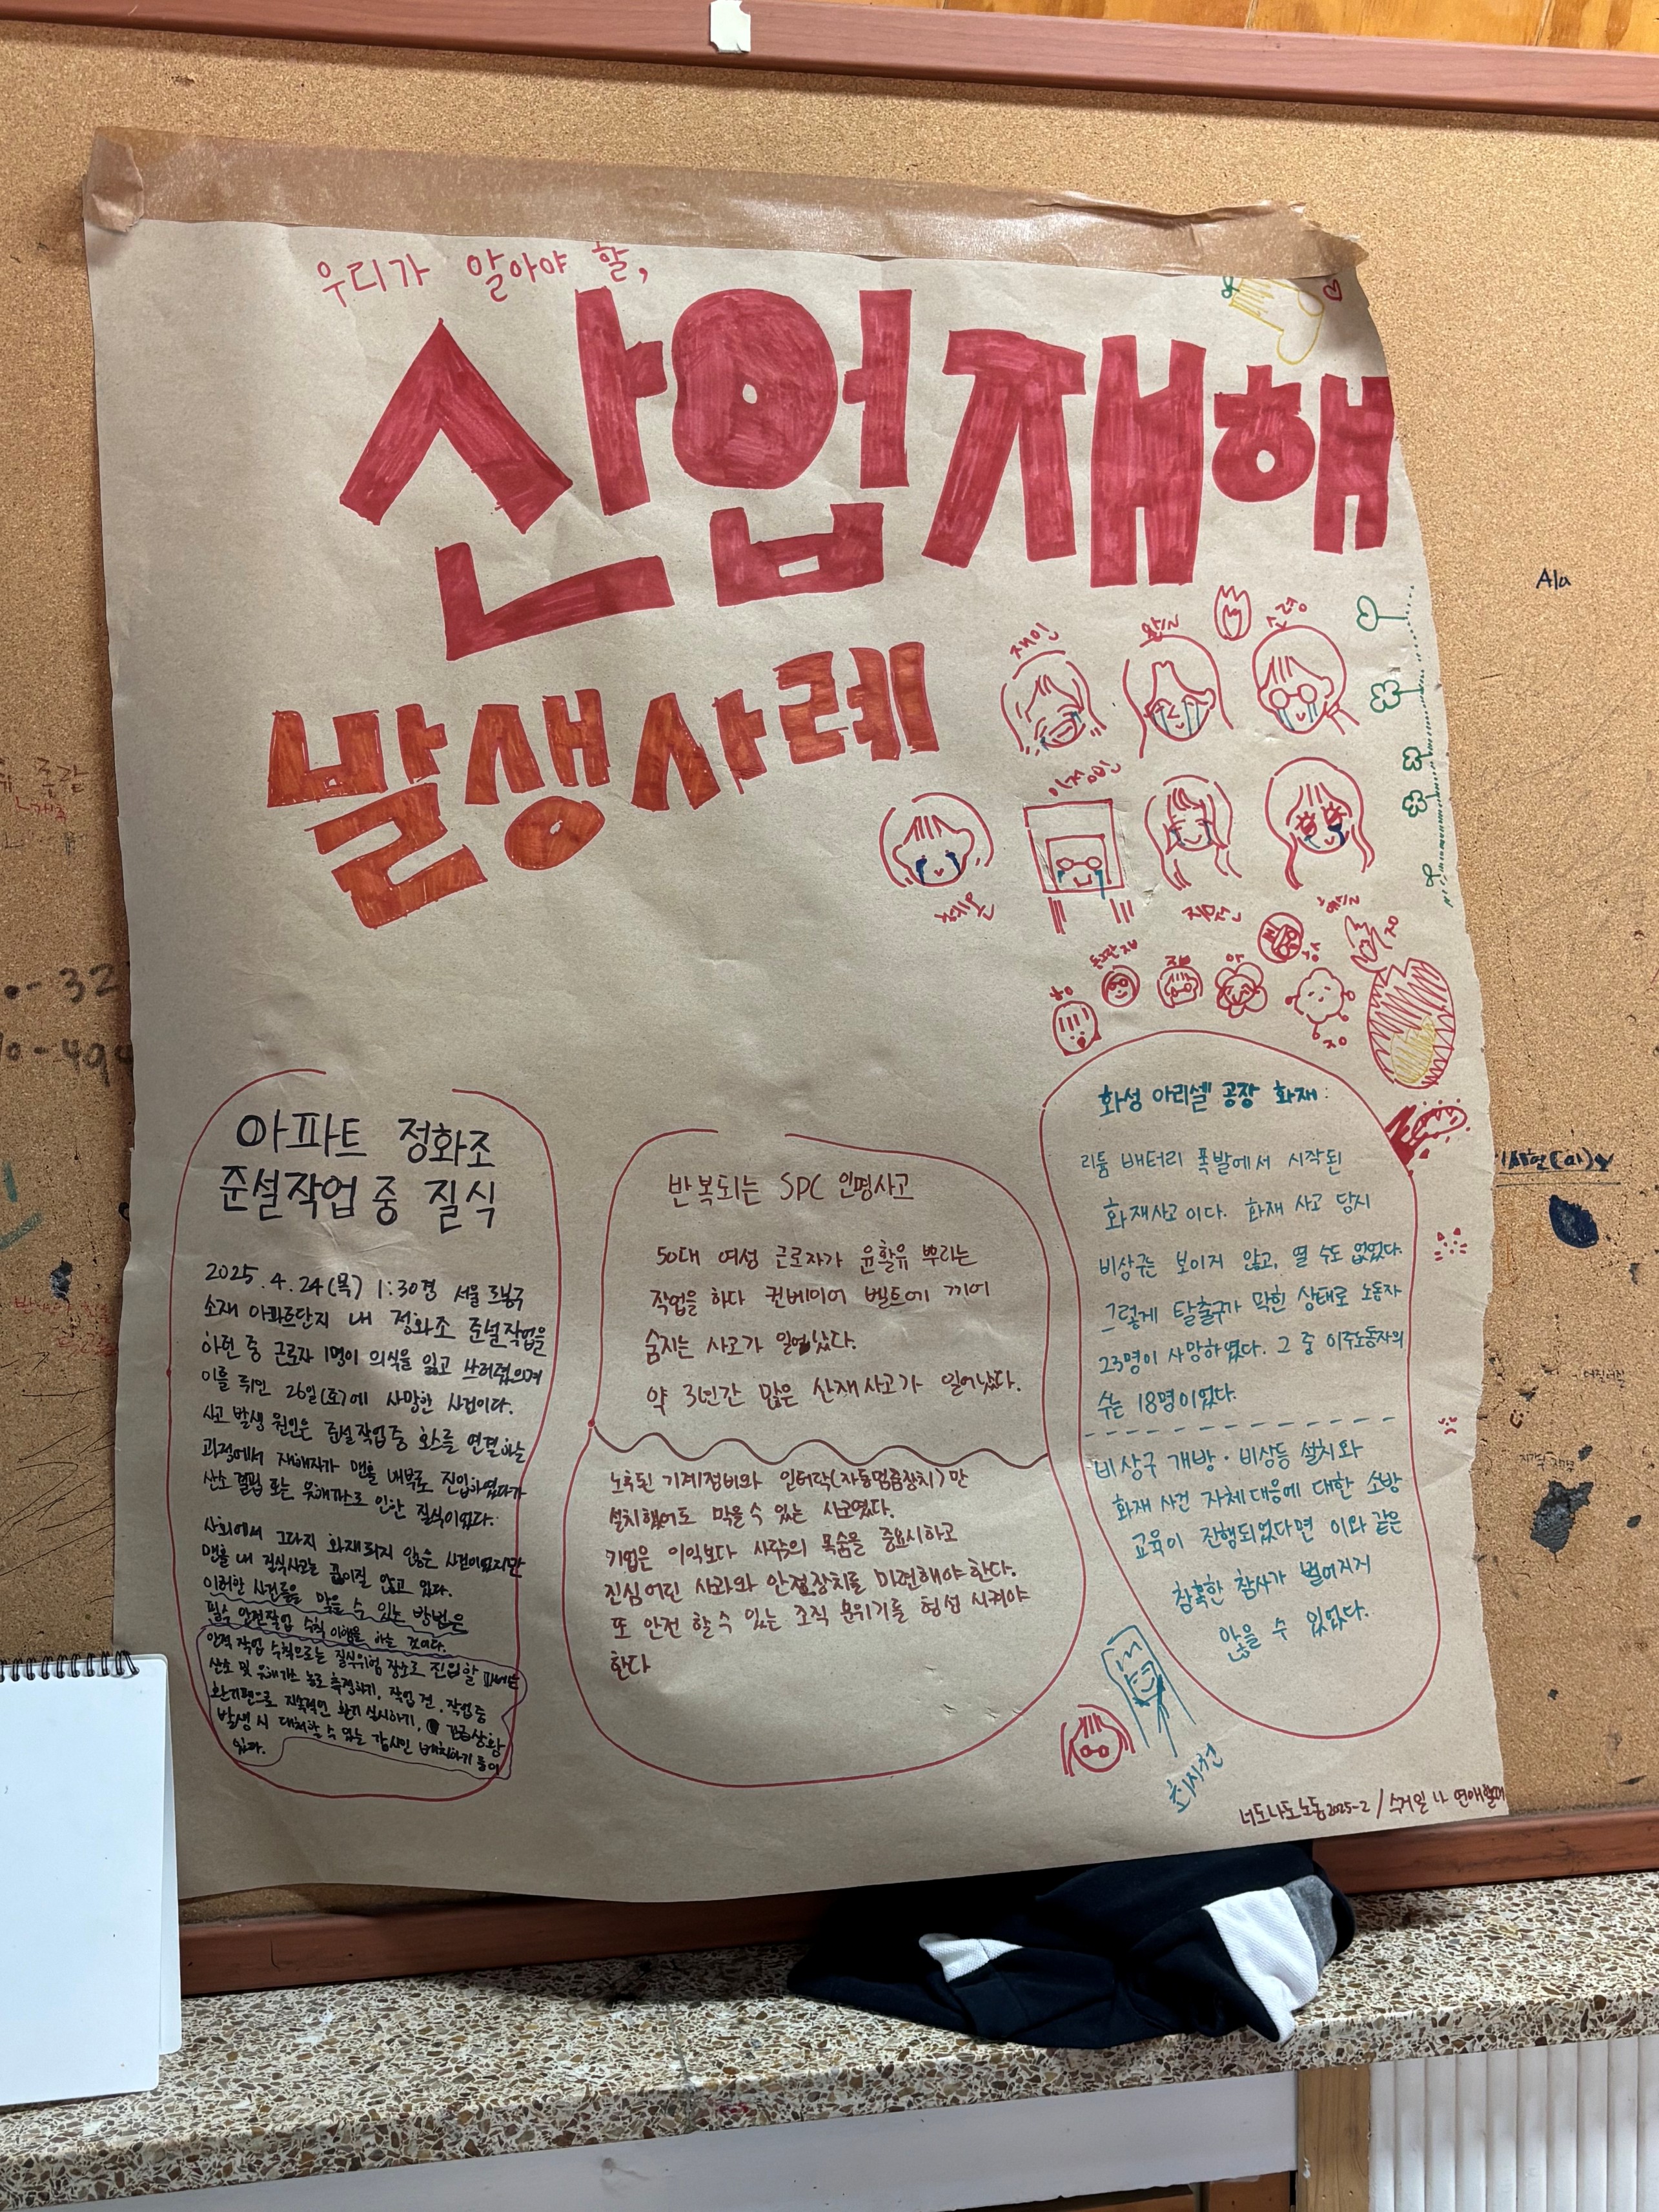 우리가 알아야 할,
산업재해
발생사례
재인
인정민
아파트 정화조
준설작업 중 질식
2025.4.24(목) 1:30경 서울 도봉구
소재 아파트단지 내 정화조 준설작업을
하던 중 근로자 1명이 의식을 잃고 쓰러졌으며
이틀 뒤인 26일(토)에 사망한 사건이다.
사고 발생 원인은 준설작업 중 호스를 연결하는
과정에서 재해자가 맨홀 내부로 진입하였다가
산소 결핍 또는 유해가스로 인한 질식이었다.
사회에서 그다지 화재되지 않은 사건이었지만
맨홀 내 질식사고는 끊이질 않고 있다.
이러한 사건들을 막을 수 있는 방법은
필수 안전작업 수칙 이행을 하는 것이다.
안전 작업 수칙으로는 질식위험 장소로 진입할 때에는
산소 및 유해가스 농도 측정하기, 작업 전·작업 중
환기팬으로 지속적인 환기 실시하기, 긴급상황
발생 시 대처할 수 있는 감시인 배치하기 등이
있다.
반복되는 SPC 인명사고
50대 여성 근로자가 윤활유 뿌리는
작업을 하다 컨베이어 벨트에 끼어
숨지는 사고가 일어났다.
약 3년간 많은 산재사고가 일어났다.
노후된 기계정비와 인터락(자동멈춤장치)만
설치했어도 막을 수 있는 사고였다.
기업은 이익보다 사람의 목숨을 중요시하고
진심어린 사과와 안전장치를 마련해야 한다.
또 안전 할 수 있는 조직 분위기를 형성 시켜야
한다
화성 아리셀 공장 화재:
리튬 배터리 폭발에서 시작된
화재사고이다. 화재 사고 당시
비상구는 보이지 않고, 열 수도 없었다.
그렇게 탈출구가 막힌 상태로 노동자
23명이 사망하였다. 그 중 이주노동자의
수는 18명이었다.
비상구 개방·비상등 설치와
화재 사건 자체 대응에 대한 소방
교육이 진행되었다면 이와 같은
참혹한 참사가 벌어지지
않을 수 있었다.
최시현
너도나도노동2025-2 / 수거일 나 연애할때
Ala